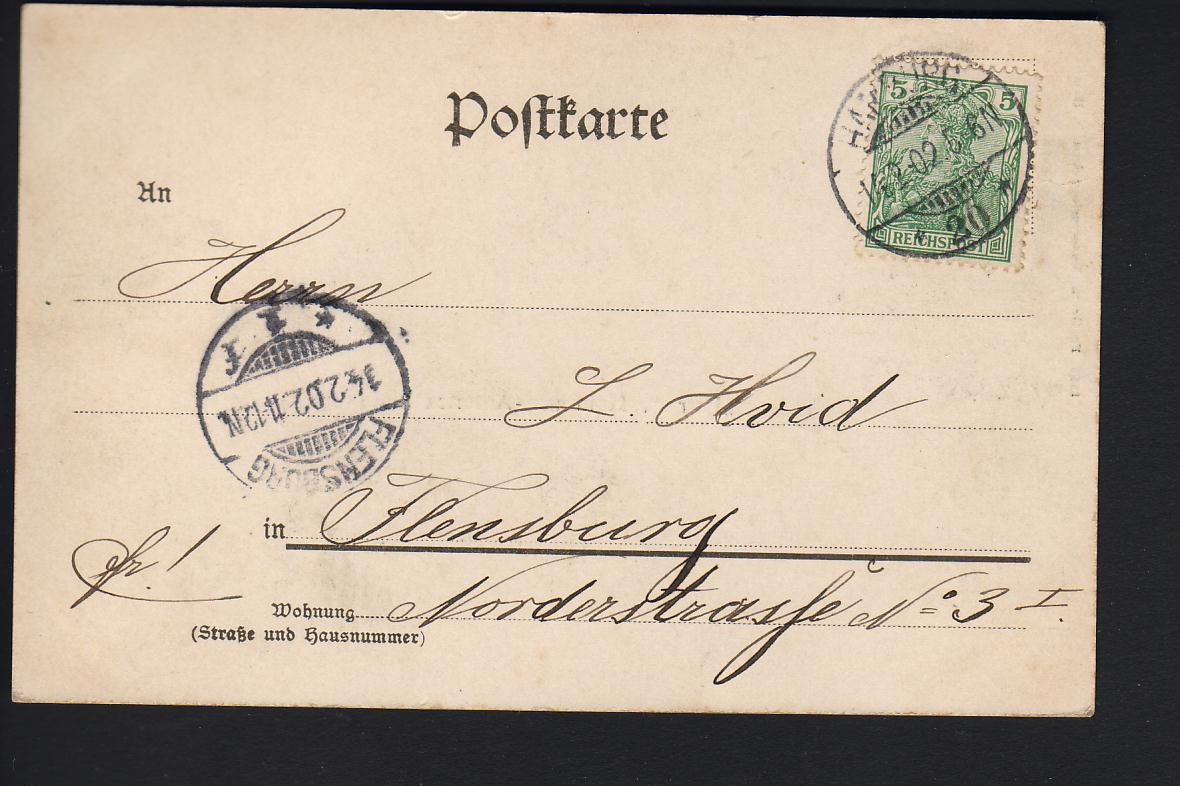 Postkarte
5 5
REICHSPOST
HAMBURG 1
.2.02. 5-6N
* 20 *
An
Herrn
L. Hvid
* 1 f
.2.02.11-12N.
FLENSBURG
in Flensburg
fr!
Wohnung Norderstrasse No 3 I
(Straße und Hausnummer)